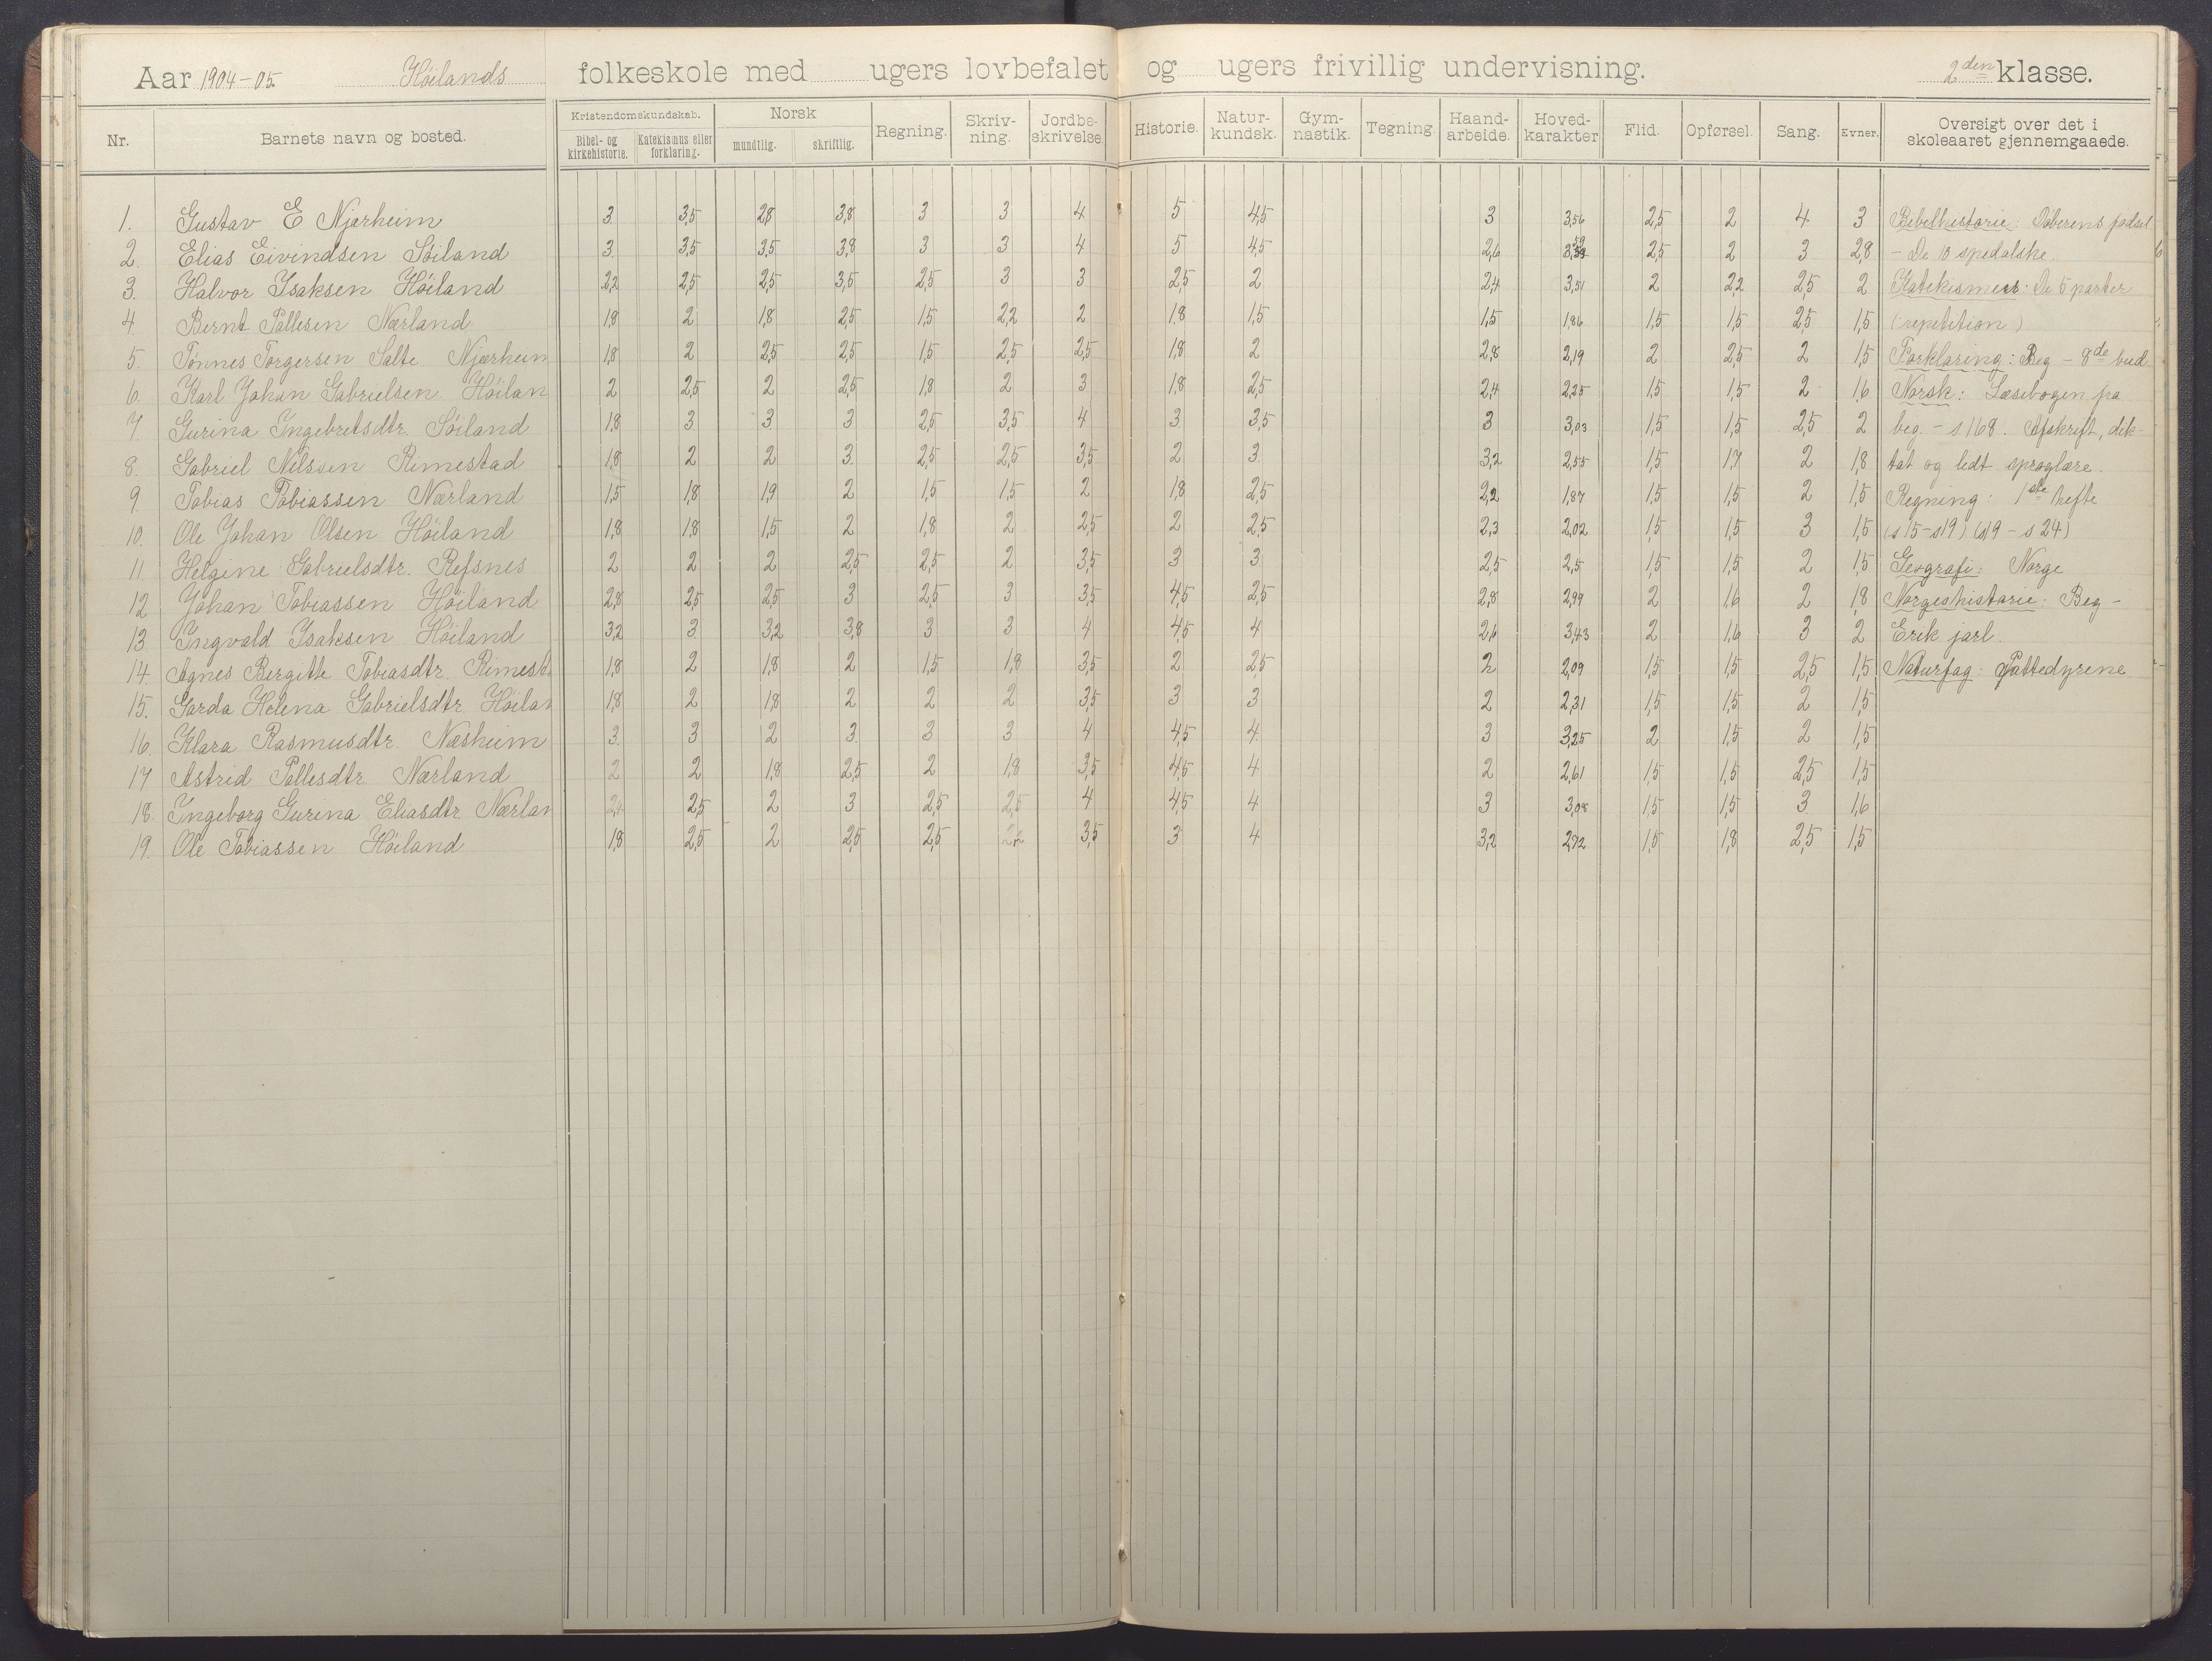 Aar 1904-05. Höilands folkeskole med ugers lovbefalet og ugers frivillig undervisning. 2den klasse.
Nr. Barnets navn og bosted. Kristendomskundskab. Bibel- og kirkehistorie. Katekismus eller forklaring. Norsk mundtlig. skriftlig. Regning. Skriv-ning. Jordbe-skrivelse Historie. Natur-kundsk. Gym-nastik. Tegning. Haand-arbeide. Hoved-karakter Flid. Opførsel. Sang. Evner. Oversigt over det i skoleaaret gjennemgaaede.
1. Gustav E Njærheim 3 3,5 2,8 3,8 3 3 4 5 4,5 3 3,56 2,5 2 4 3 Bibelhistorie: Døberens fødsel
2. Elias Eivindsen Söiland 3 3,5 3,5 3,8 3 3 4 5 4,5 2,6 3,59 2,5 2 3 2,8 - De 10 spedalske.
3. Halvor Isaksen Höiland 2,2 2,5 2,5 3,5 2,5 3 3 2,5 2 2,4 3,51 2 2,2 2,5 2 Katekismus: De 5 parter
4. Bernt Pallesen Nærland 1,8 2 1,8 2,5 1,5 2,2 2 1,8 1,5 1,5 1,86 1,5 1,5 2,5 1,5 (repetition)
5. Tönnes Torgersen Salte Njærheim 1,8 2 2,5 2,5 1,5 2,5 2,5 1,8 2 2,8 2,19 2 2,5 2 1,5 Forklaring: Beg - 8de bud
6. Karl Johan Gabrielsen Höilan 2 2,5 2 2,5 1,8 2 3 1,8 2,5 2,4 2,25 1,5 1,5 2 1,6 Norsk: Læsebogen fra
7. Gurina Ingebretsdtr. Söiland 1,8 3 3 3 2,5 3,5 4 3 3,5 3 3,03 1,5 1,5 2,5 2 beg. - s 168. Afskrift, dik-
8. Gabriel Nilssen Rimestad 1,8 2 2 3 2,5 2,5 3,5 2 3 3,2 2,55 1,5 1,7 2 1,8 tat og lidt sproglære.
9. Tobias Tobiassen Nærland 1,5 1,8 1,9 2 1,5 1,5 2 1,8 2,5 2,2 1,87 1,5 1,5 2 1,5 Regning: 1ste hefte
10. Ole Johan Olsen Höiland 1,8 1,8 1,5 2 1,8 2 2,5 2 2,5 2,3 2,02 1,5 1,5 3 1,5 (s 15-s19) (s19 - s 24)
11. Helgine Gabrielsdtr. Refsnes 2 2 2 2,5 2,5 2 3,5 3 3 2,5 2,5 1,5 1,5 2 1,5 Geografi: Norge
12 Johan Tobiassen Höiland 2,8 2,5 2,5 3 2,5 3 3,5 4,5 2,5 2,8 2,99 2 1,6 2 1,8 Norgeshistorie: Beg -
13. Ingvald Isaksen Höiland 3,2 3 3,2 3,8 3 3 4 4,5 4 2,6 3,43 2 1,6 3 2 Erik jarl.
14. Agnes Bergitte Tobiasdtr. Rimest 1,8 2 1,8 2 1,5 1,8 3,5 2 2,5 2 2,09 1,5 1,5 2,5 1,5 Naturfag: Pattedyrene
15. Garda Helena Gabrielsdtr. Höilan 1,8 2 1,8 2 2 2 3,5 3 3 2 2,31 1,5 1,5 2 1,5
16. Klara Rasmusdtr. Næsheim 3 3 2 3 3 3 4 4,5 4 3 3,25 2 1,5 2 1,5
17 Astrid Pallesdtr. Nærland 2 2 1,8 2,5 2 1,8 3,5 4,5 4 2 2,61 1,5 1,5 2,5 1,5
18. Ingeborg Gurina Eliasdtr Nærlan 2,5 2 3 2,5 2,5 4 4,5 4 3 3,08 1,5 1,5 3 1,6
19. Ole Tobiassen Höiland 1,8 2,5 2 2,5 2,5 2,2 3,5 3 4 3,2 2,72 1,5 1,8 2,5 1,5